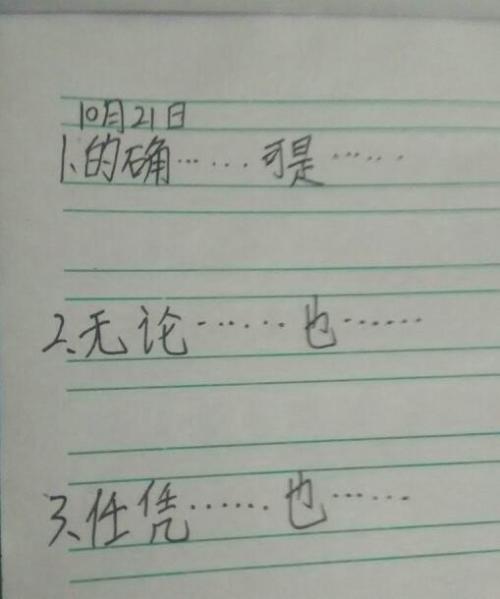 10月21日
1、的确……可是……
2、无论……也……
3、任凭……也……